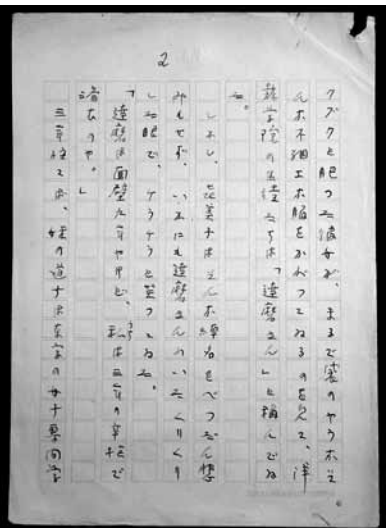 2
クブクと肥つた彼女が、まるで袋のやうなそ
んな不細工な服をかぶつてゐるのを見て、洋
裁学院の生徒たちは「達磨さん」と称んでゐ
た。
しかし、喜美子はそんな綽名をべつだん悲
みもせず、いかにも達磨さんめいたくりくり
した眼で、ケラケラと笑つてゐた。
「達磨は面壁九年やけど、私は三年の辛抱で
済むのや。」
三年経てば、妹の道子は東京の女子専門学